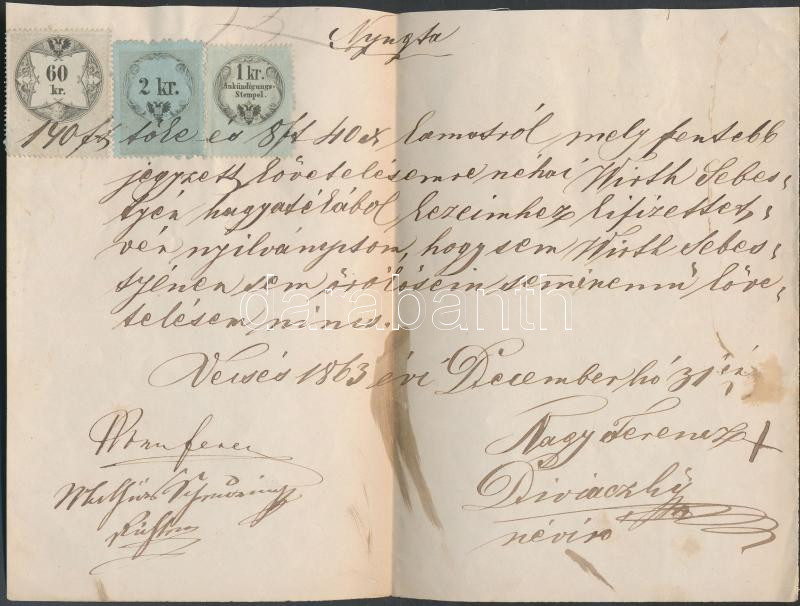 Nyugta
60
kr.
2 kr.
1 kr.
Ankündigungs-
Stempel.
140 ft tőke és 8 ft 40 x kamatról mely fentebb
jegyzett követelésemre néhai Wirth Sebes-
tyén hagyatékából kezeimhez kifizettet-
vén nyilványitom, hogy sem Wirth Sebes-
tyénen sem örökösein seminemű köve-
telésem nincs.
Vecsés 1863 évi December hó 31én
Nagy Ferencz +
Diviaczky
névíró
darabanth